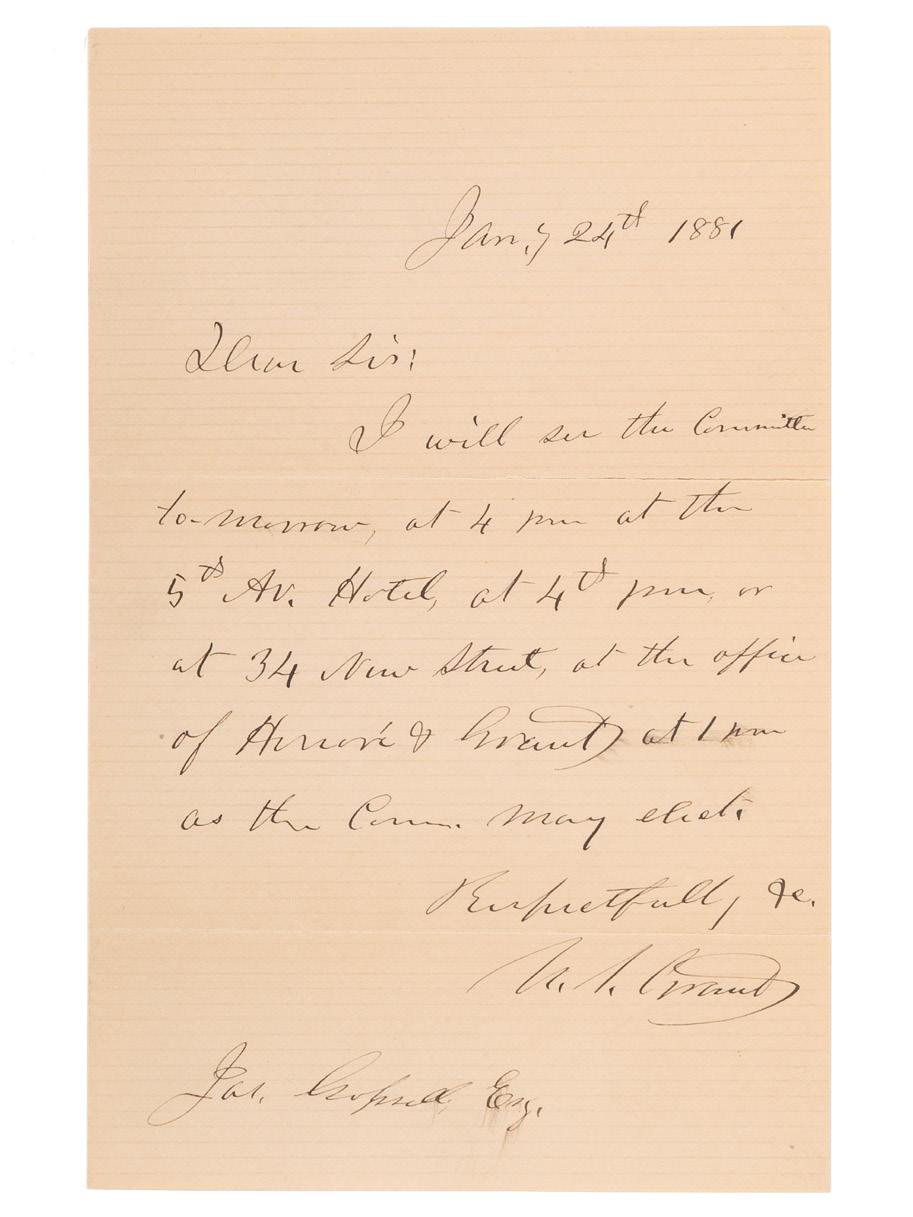 Jan.y 24th 1881
Dear Sir:
I will see the Committee
to-morrow, at 4 pm at the
5th Av. Hotel, at 4th pm, or
at 34 New Street, at the office
of Honoré & Grant, at 1 pm
as the Com. may elect.
Respectfully, &c.
U. S. Grant
Jas. Esq.